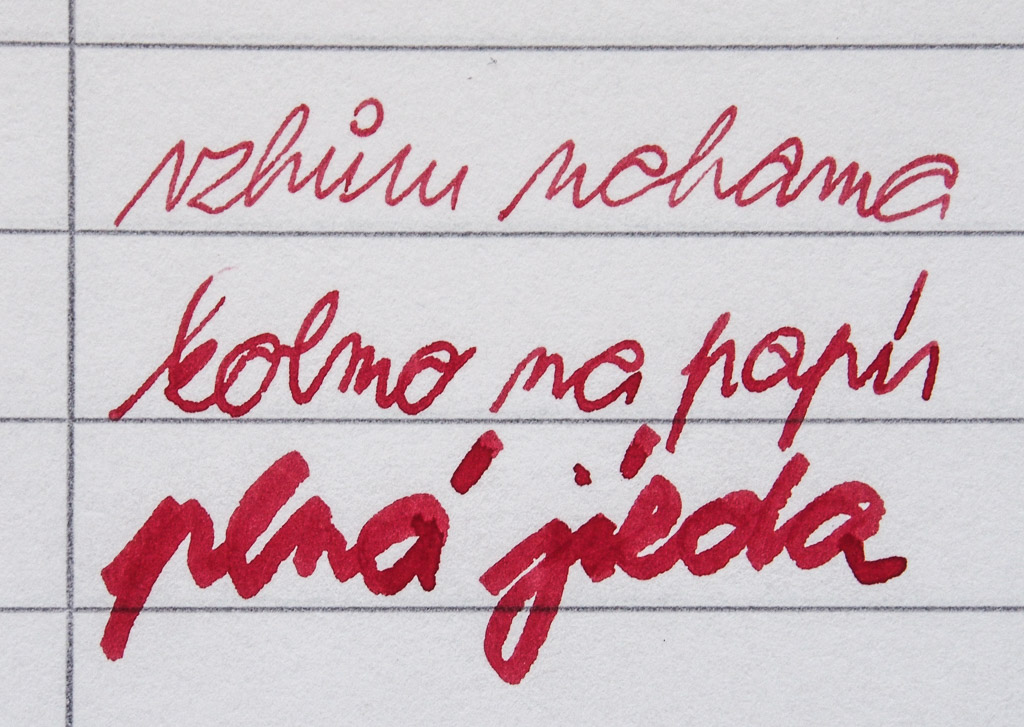 vzhůru nohama
kolmo na papír
plná jízda